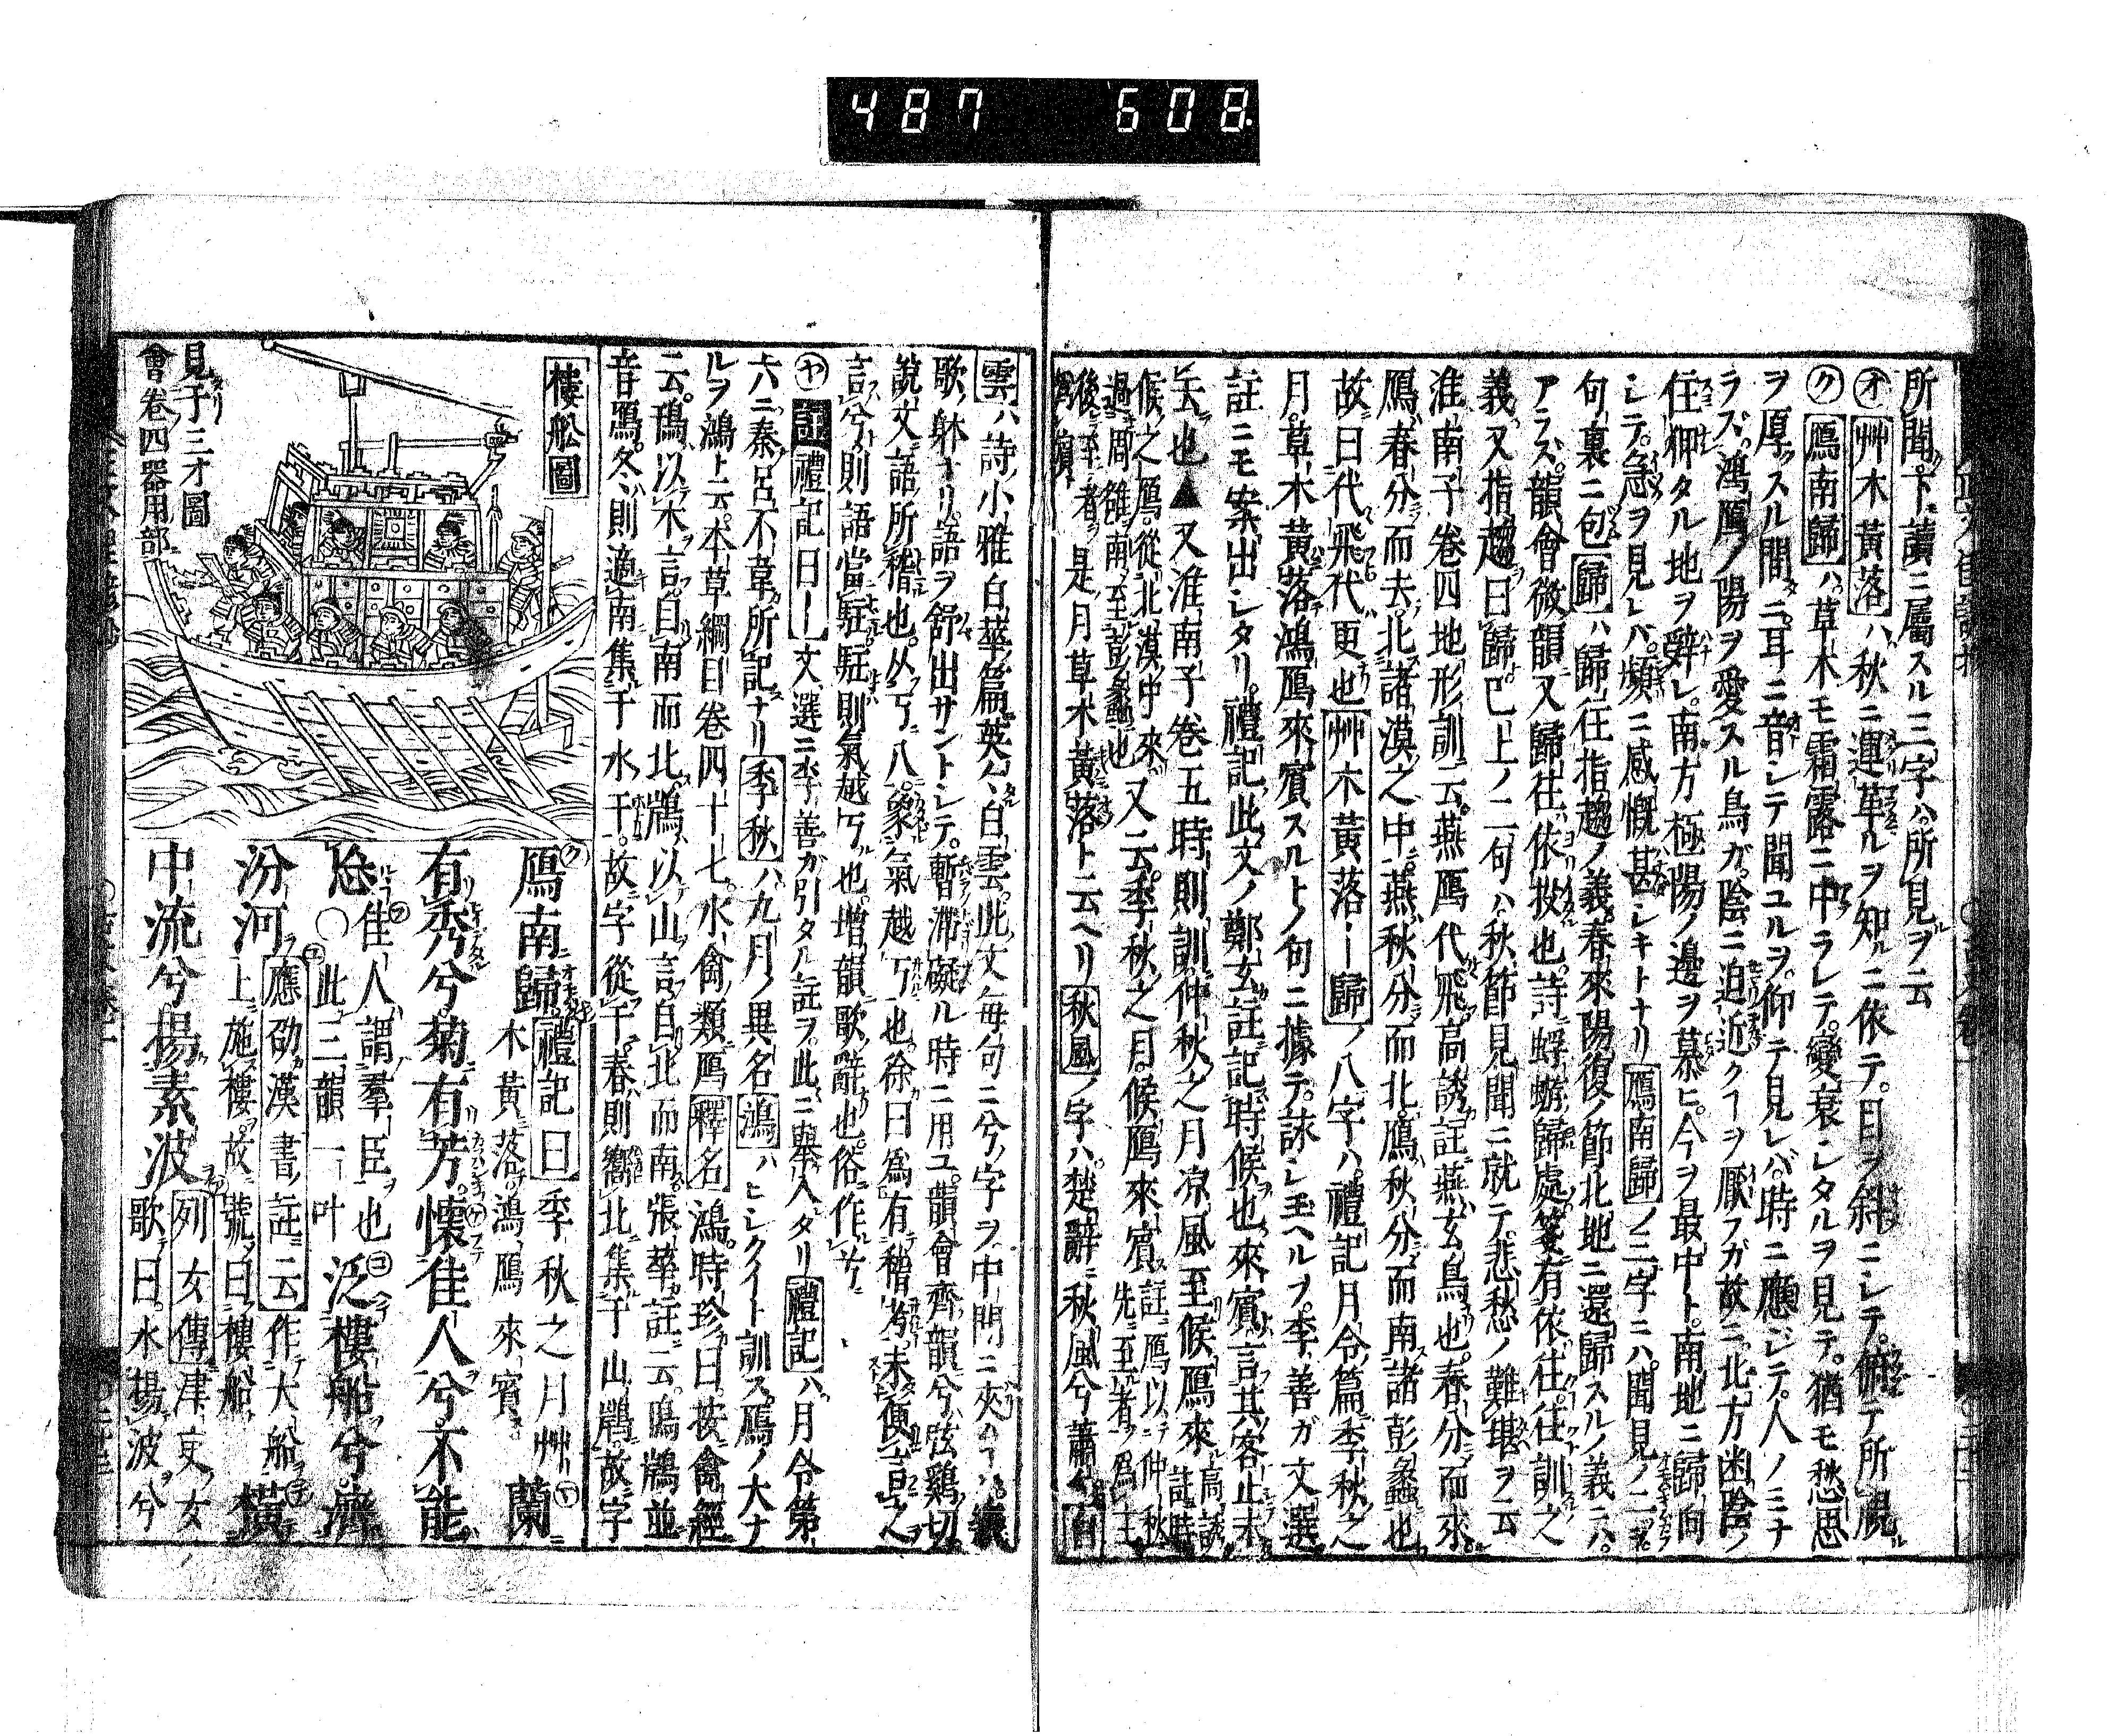 487 608
所聞。下ノ讀ニ屬スル三字ハ。所見ヲ云
オ 艸木黃落ハ。秋ニ運リ革ルヲ知ルニ依テ。目ヲ斜ニシテ。俯テ所覗ル
ク 鴈南歸ハ。草木モ霜露ニ中ラレテ。變衰シタルヲ見テ。猶モ愁思
ヲ厚フスル間タニ。耳ニ音シテ聞ユルヲ。仰テ見レバ。時ニ應ジテ。人ノミナ
ラズ。鴻鴈ノ陽ヲ愛スル鳥ガ。陰ニ迫リ近クヿヲ厭フガ故ニ。北方困陰ノ
住狎タル地ヲ辭レ。南方極陽ノ邊ヲ慕ヒ。今ヲ最中ト。南地ニ歸向
シテ。急ヲ見レバ。頻ニ感慨甚シキトナリ 鴈南歸ノ三字ニハ。聞見ノ二ツヲ。
句ノ裏ニ包 歸ハ歸往指趨ノ義。春來陽復ノ節北地ニ還歸スルノ義ニハ。
アラズ。韻會微韻又歸往依投也。詩蜉蝣歸處。箋有依往。往訓之
義。又指趨曰歸已上ノ二句ハ。秋節見聞ニ就テ。悲愁ノ難堪ヲ云
淮南子卷四地形訓云。燕鴈代飛。高誘註燕玄鳥也。春分而來
鴈春分而去。北諸漠之中。燕秋分而北。鴈秋分而南諸彭蠡也
故曰代飛。代更也 艸木黃落ー歸ノ八字ハ。禮記月令篇季秋之
月。草木黃落鴻鴈來賓スルトノ句ニ據テ。詠シ玉ヘルヲ。李善ガ文選
註ニモ案出シタリ。禮記此文ノ鄭玄註記時候也。來賓言其客止未
去也▲又淮南子卷五時則訓仲秋之月凉風至候鴈來高誘註時
候之鴈從北漠中來 又云季秋之月。候鴈來賓註鴈以仲秋先至者爲主
後至者 是月草木黃落ト云ヘリ 秋風ノ字ハ。楚辭ニ秋風兮蕭蕭 白
雲ハ詩小雅白華篇英英タル白雲。此文每句ニ兮ノ字ヲ中間ニ夾ハヿハ。
歌ノ躰ナリ。語ヲ舒出サントシテ。暫滯礙ル時ニ用ユ。韻會齊韻兮弦鷄切。
說文語所稽也。从丂八。象氣越丂也徐曰爲有稽考未便言之
言兮則語當駐。駐則氣越丂也。增韻歌辭也。俗作
ヤ 註 禮記曰ー文選ニ李善ガ引タル註ヲ。此ニ擧入タリ 禮記ハ月令第
六ニ秦呂不韋所記ナリ 季秋ハ九月ノ異名 鴻ハヒシクイト訓ス。鴈ノ大ナ
ルヲ鴻上云。本草綱目卷四十七。水禽類鴈 釋名 鴻。時珍曰。按禽經
云。鳱以水言自南而北。鳱以山言自北而南。張華註云鳱鳱並
音鴈。冬則適南集于水干。故字從干。春則嚮北集于山。故字
樓舩圖
見于三才圖
會卷四器用部
鴈南歸 禮記曰 季秋之月艸
木黃落。鴻鴈來賓 蘭
有秀兮。菊有芳。懷佳人兮。不能
忘 佳人謂羣臣也
○此三韻一叶 泛樓船兮。濟
汾河 應劭漢書註云 作大船
上施樓。故號曰樓船 橫
中流兮。揚素波 列女傳津吏女
歌曰。水揚波兮